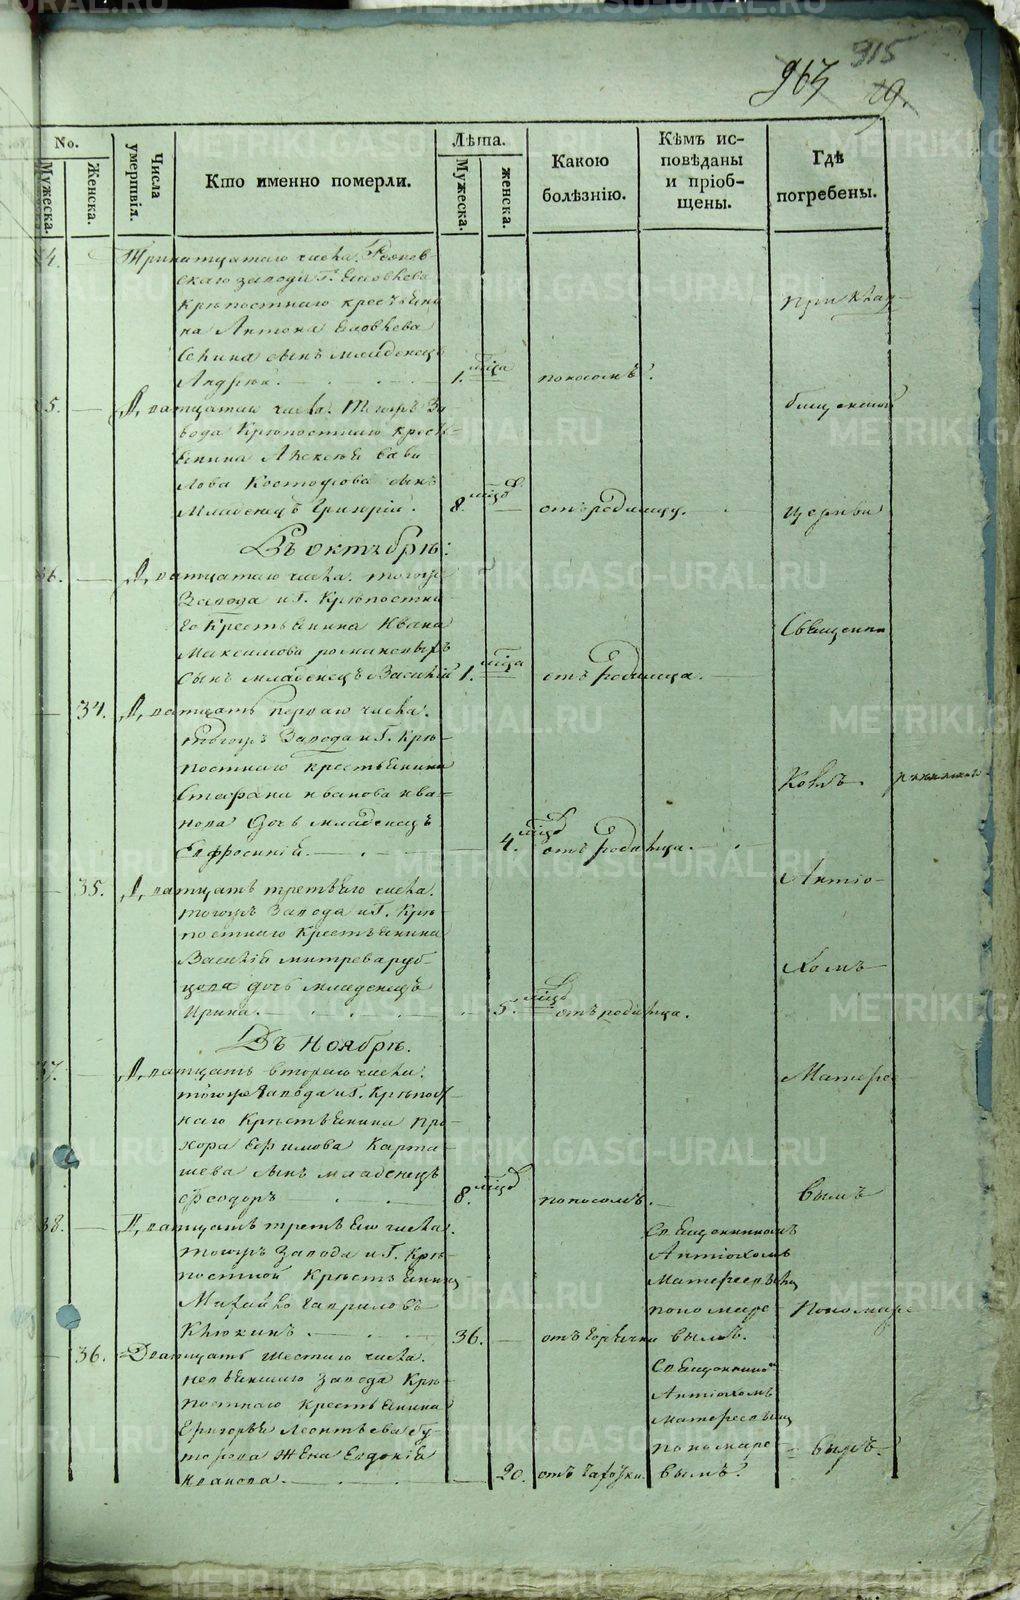 963
915
29.
No.
Мужеска.
Женска.
Числа умертвія.
Кто именно померли.
Лѣта.
Мужеска.
женска.
Какою болѣзнію.
Кѣмъ исповѣданы и пріобщены.
Гдѣ погребены.
4.
Тринатцатаго числа.
скаго завода Г.
Крѣпостнаго крестьяни
на Антона
сынъ младенецъ
Андрей.
1. мѣсяца
поносомъ.
При Клад
5.
Дватцатаго числа. Тогожъ За
вода Крѣпостнаго крестья
янина Алексѣя Сави
лова Костоусова сынъ
Младенецъ Григорій.
8. мѣсяцъ
отъ родимцу.
бищенской
церкви
Въ октябрѣ:
36.
Дватцатаго числа. тогоже
Завода и Г. Крѣпостна
го Крестьянина Ивана
Максимова
Сынъ младенецъ Василій
1. мѣсяца
отъ Родимца.
Священни
34.
Дватцать перваго числа.
тогожъ Завода и Г. Крѣ-
постнаго Крестьянина
Стефана Иванова Ива-
нова дочь младенецъ
Евфросинія.
4. мѣсяцъ
отъ Родимца.
комъ
35.
Дватцать третьяго числа.
тогожъ Завода и Г. Крѣ-
постнаго Крестьянина
Василія митрева руб
цова дочь младенецъ
Ирина.
5. мѣсяцъ
отъ родимца.
Антіо-
хомъ
Въ Ноябрѣ.
37.
Дватцать втораго числа.
тогоже Завода и Г. Крѣпост-
наго Крестьянина Про-
хора Ефимова Карта
шева сынъ младенецъ
Феодоръ
8. мѣсяцъ
поносомъ.
Матфее
вымъ
38.
Дватцать третьяго числа.
тогожъ Завода и Г. Крѣ-
постной Крестьянинъ
Михайло Гавриловъ
Клюкинъ.
36.
отъ горячки
Священникомъ
Антіохомъ
Матфеевымъ
пономаре-
вымъ.
Пономаре
36.
Дватцать шестаго числа.
невьянскаго Завода Крѣ-
постнаго Крестьянина
Григорья Леонтьева Бу
торова Жена Евдокія
Иванова.
20.
отъ чахотки.
Священникомъ
Антіохомъ
Матфеевымъ
пономаре-
вымъ.
вымъ.
METRIKI.GASO-URAL.RU